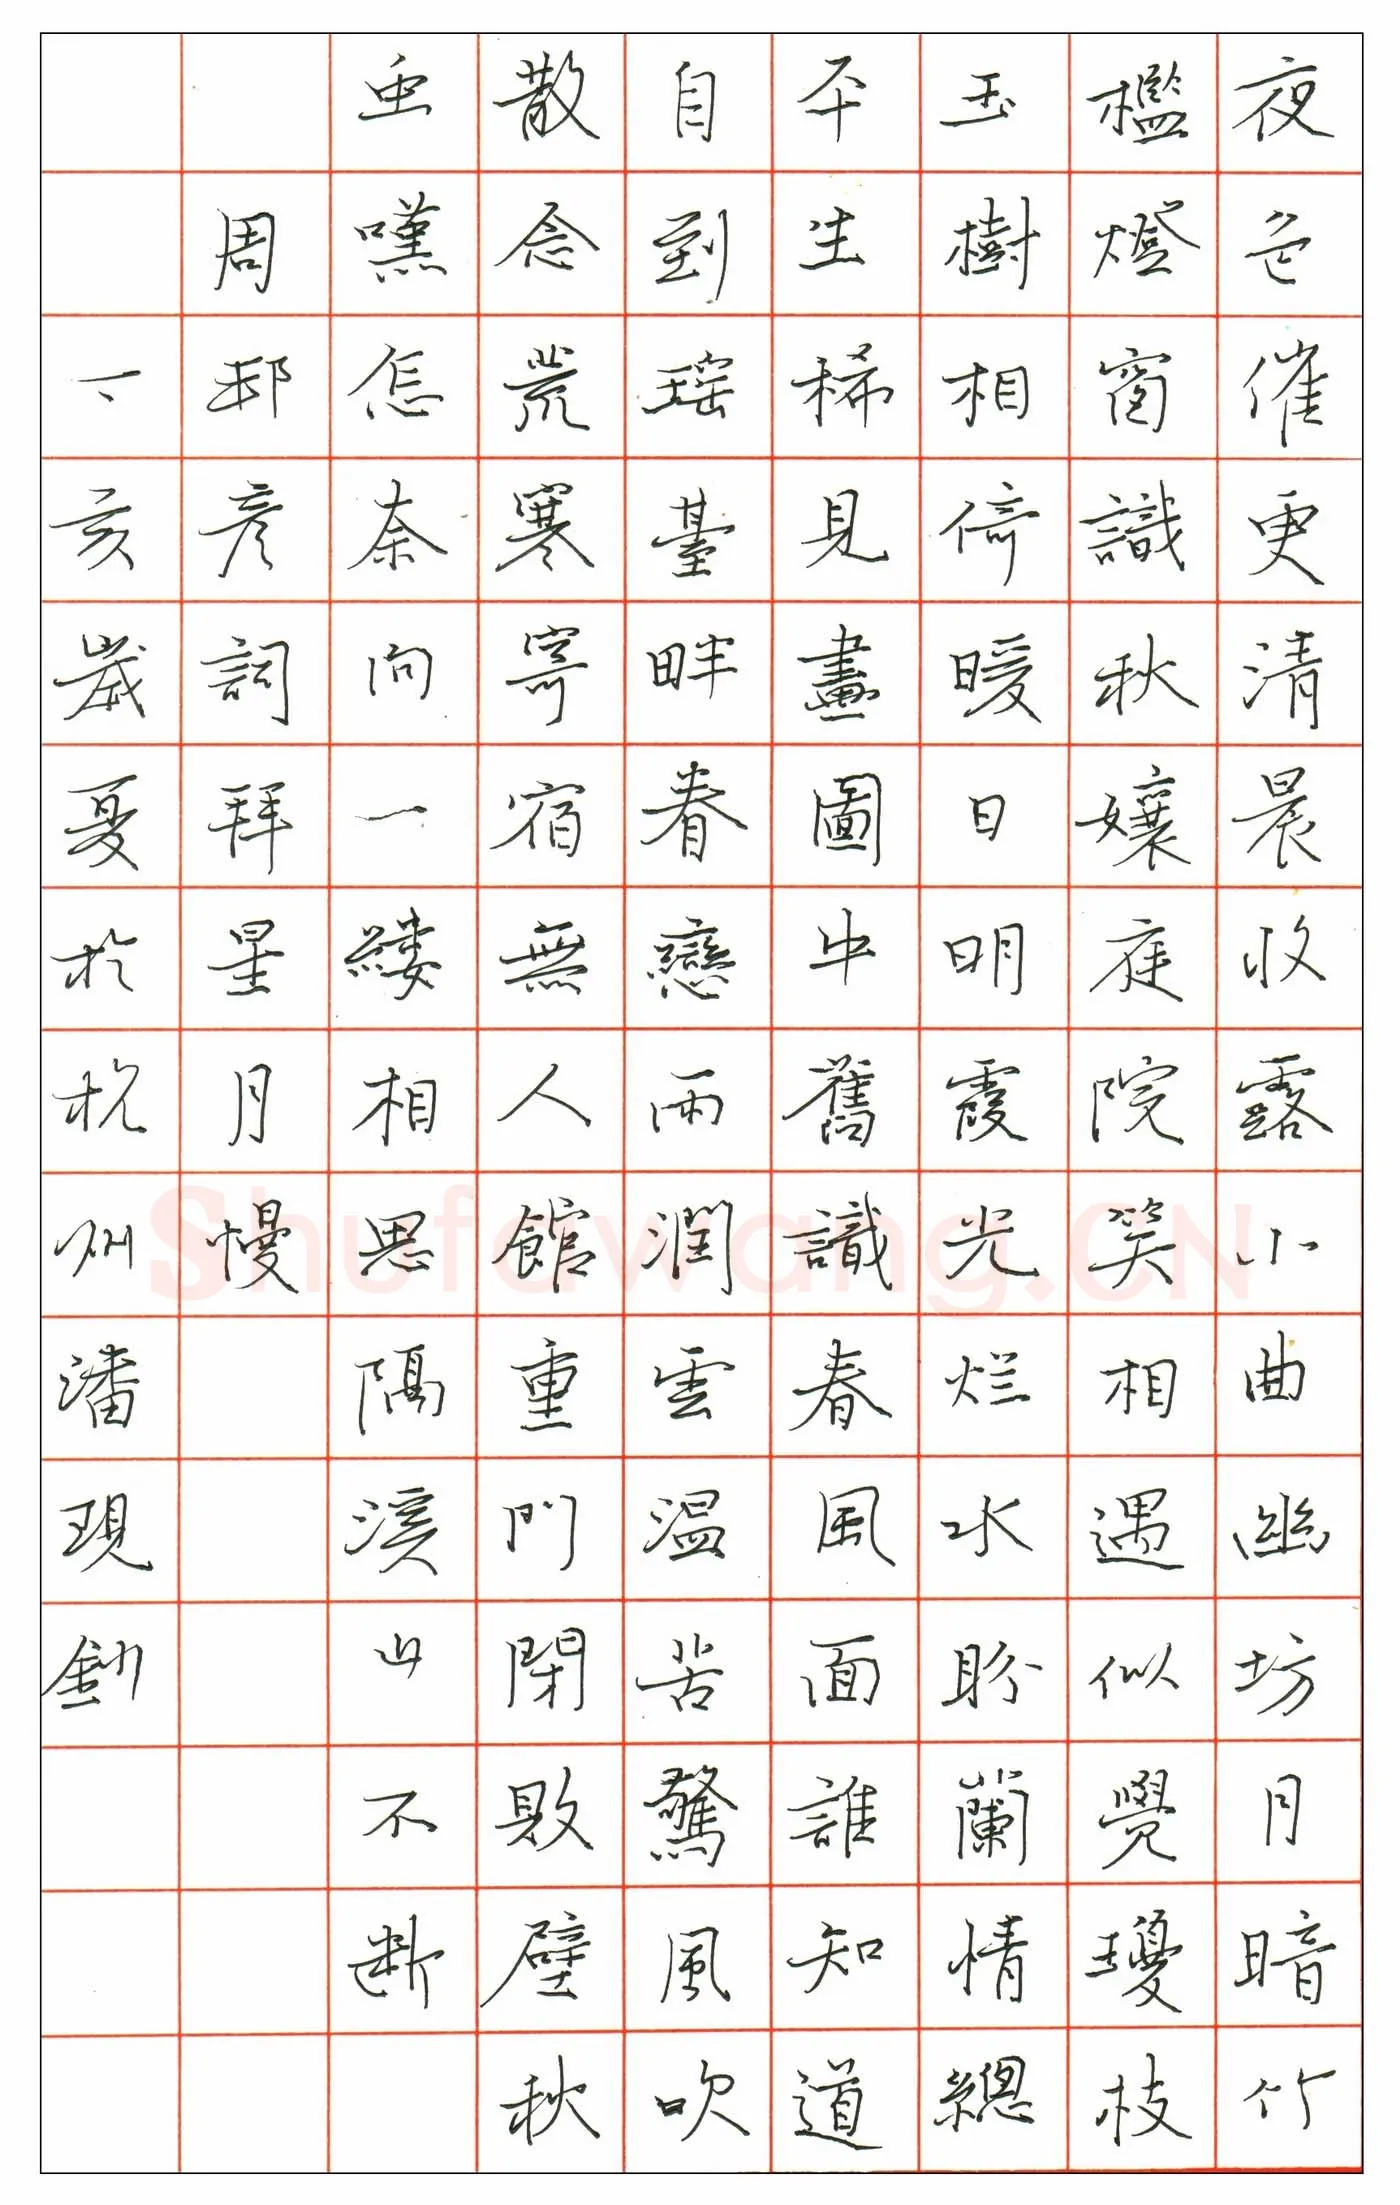 夜色催更清晨收露小曲幽坊月暗竹
檻燈窗識秋孃庭院笑相遇似覺瓊枝
玉樹相倚暖日明霞光烂水盼蘭情總
平生稀見畫圖中舊識春風面誰知道
自到瑶臺畔眷戀雨潤雲温苦驚風吹
散念荒寒寄宿無人館重門閉敗壁秋
虫嘆怎奈向一縷相思隔溪山不断
周邦彦詞拜星月慢
丁亥歲夏於杭州潘現
Shufawang.CN